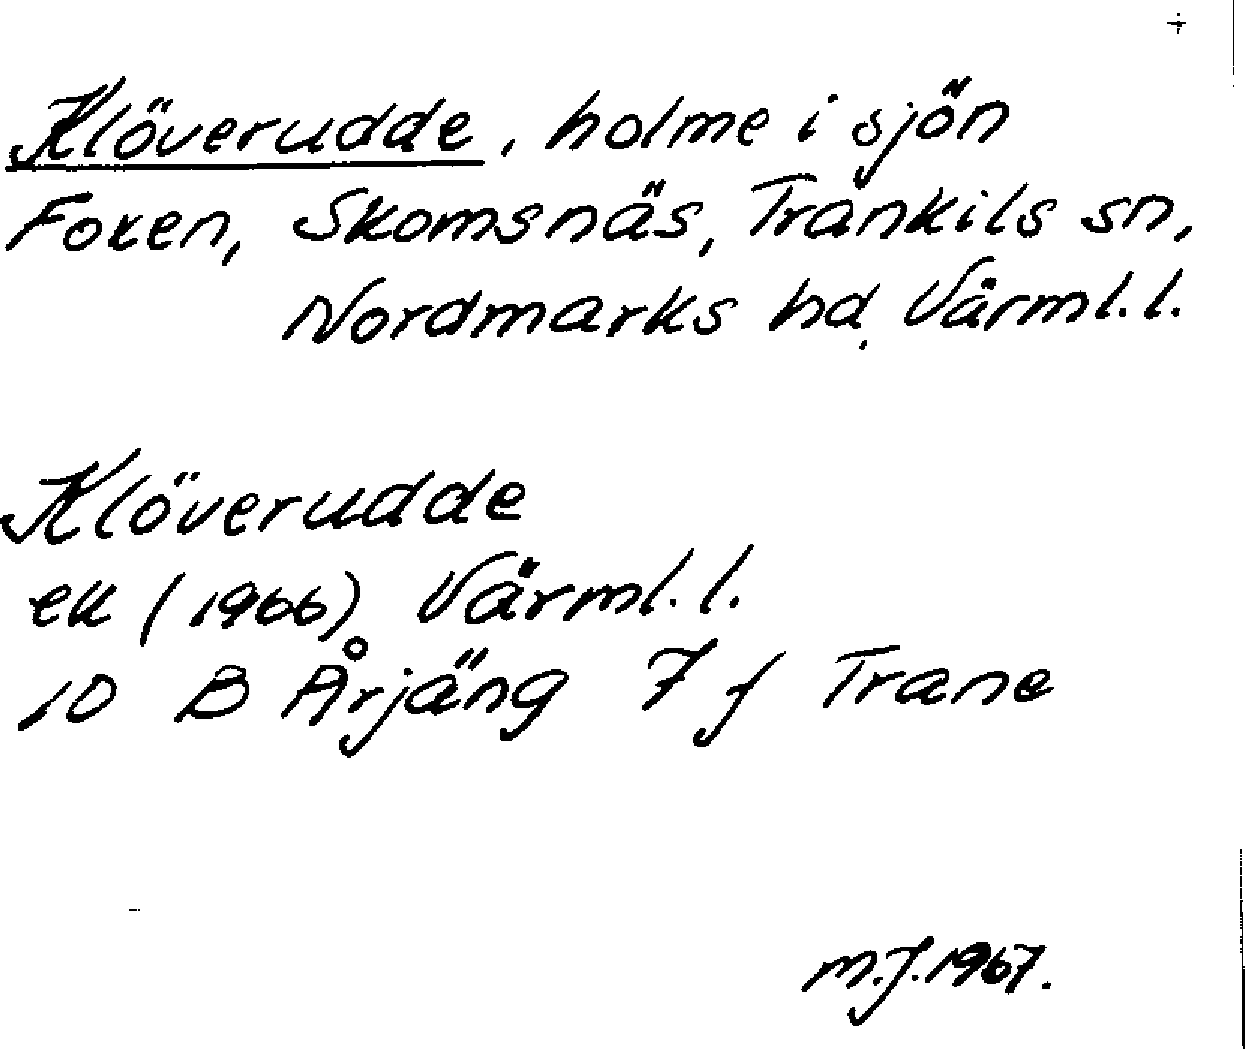 Klöverudde, holme i sjön
Foxen, Skomsnäs, Trankils sn,
Nordmarks hd, Värml. l.
Klöverudde
ek (1966) Värml. l.
10 B Årjäng 7 f Trane
M.J. 1967.